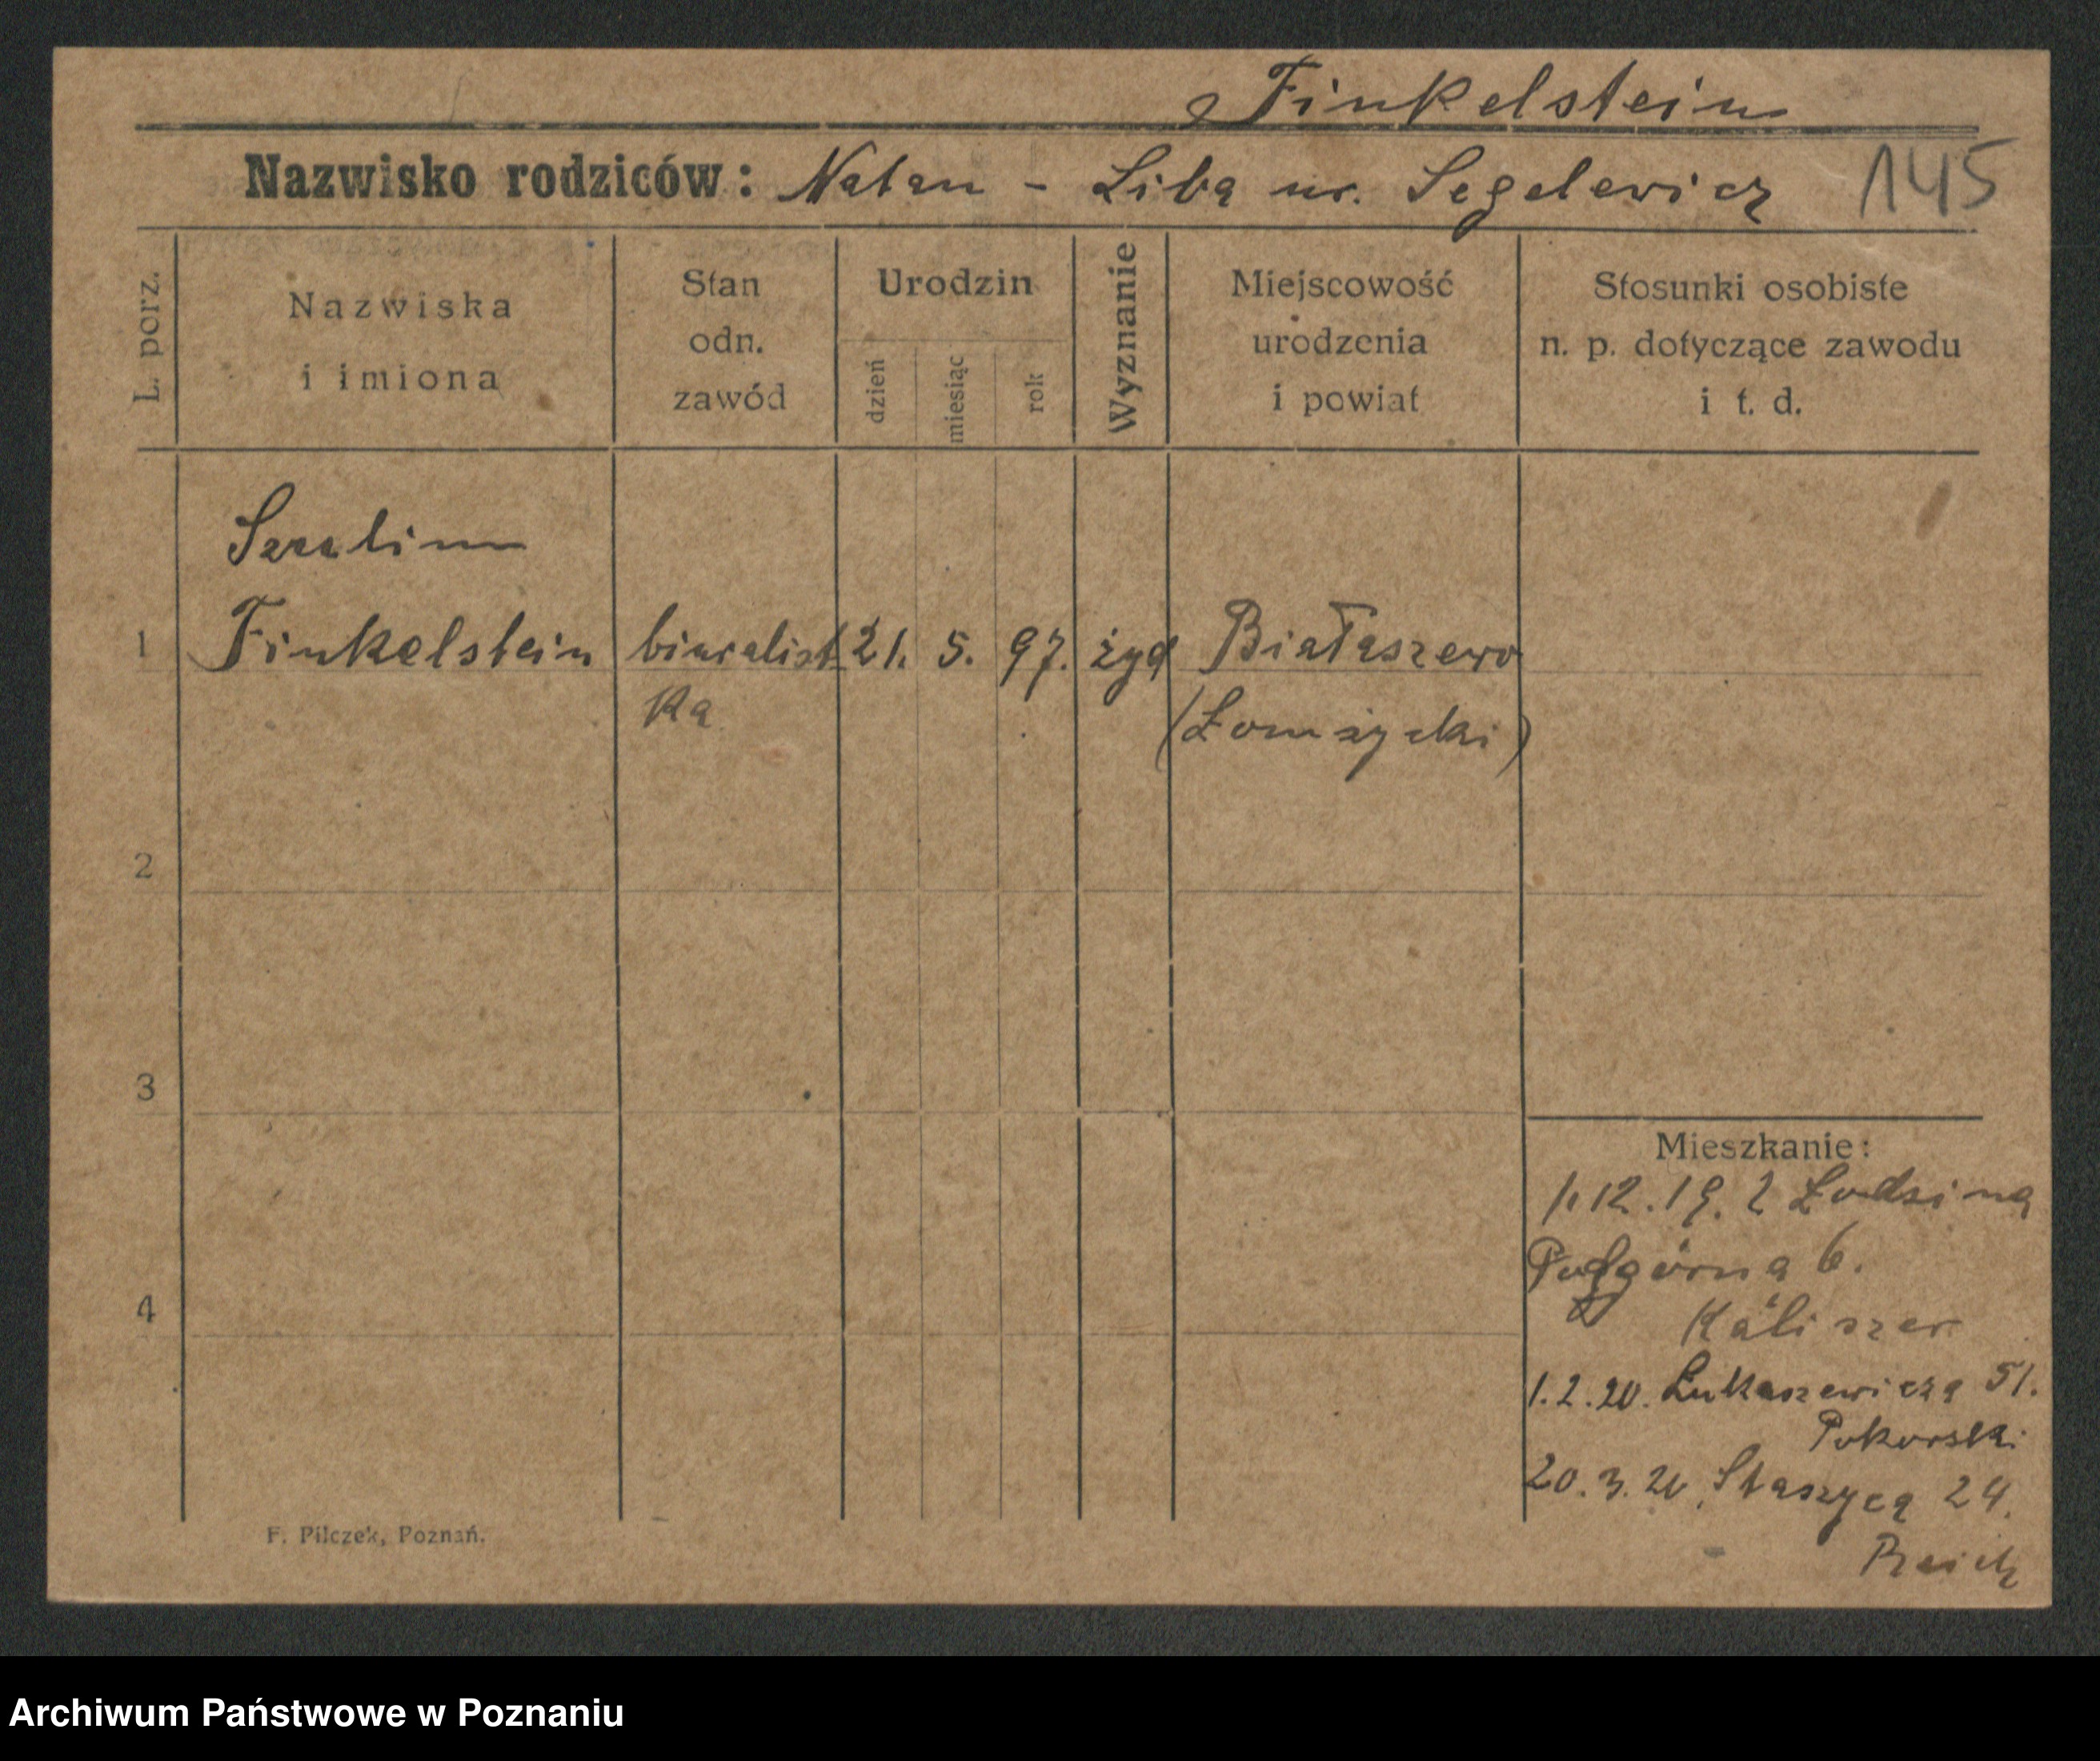 Finkelstein
Nazwisko rodziców: Natan - Liba ur. Segelewicz 145
L. porz.
Nazwiska
i imiona
Stan
odn.
zawód
Urodzin
dzień
miesiąc
rok
Wyznanie
Miejscowość
urodzenia
i powiat
Stosunki osobiste
n. p. dotyczące zawodu
i t. d.
1 Finkelstein biuralist 21. 5. 97. żyd Białaszewo
ka (Łomżycki)
2
3
4
Mieszkanie:
1.12.19. z Łodzi na
Podgórna 6.
Kaliszer
1.2.20. Łukaszewicza 51.
Pokorski
20.3.20. Staszyca 24.
F. Pilczek, Poznań.
Archiwum Państwowe w Poznaniu